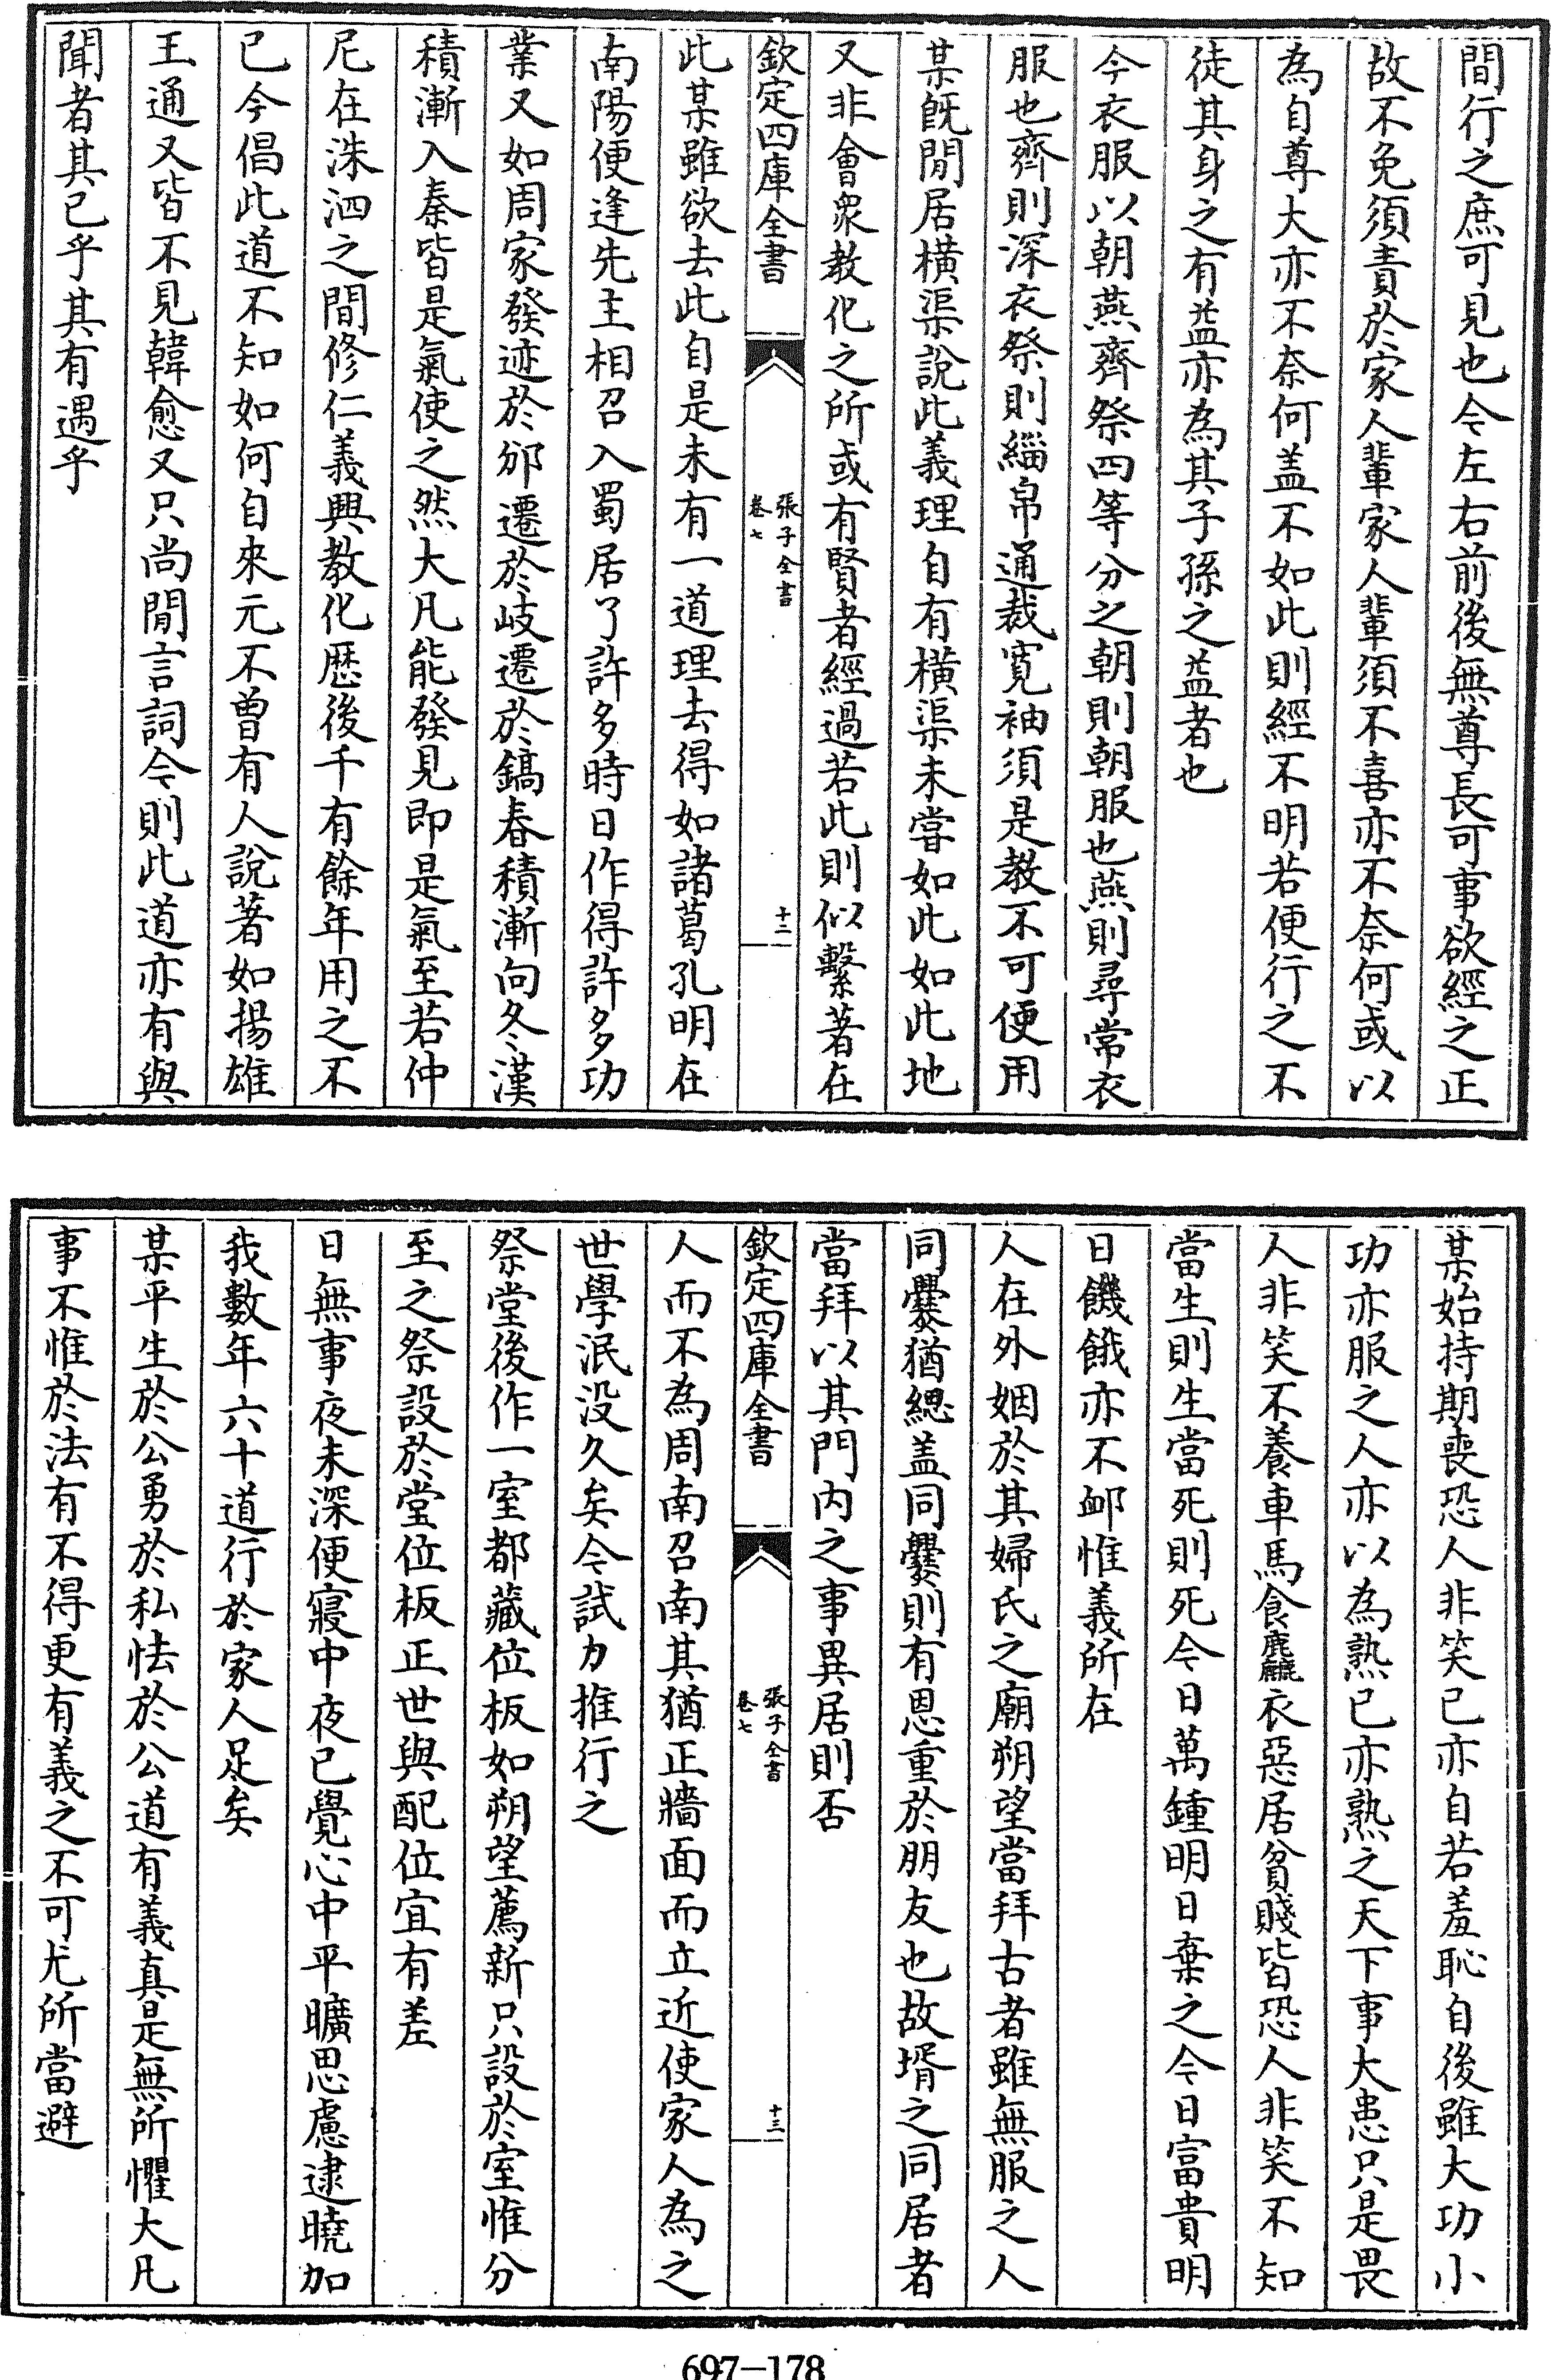 間行之庶可見也今左右前後無尊長可事欲經之正
故不免須責於家人輩家人輩須不喜亦不奈何或以
為自尊大亦不奈何盖不如此則經不明若便行之不
徒其身之有益亦為其子孫之益者也
今衣服以朝燕齊祭四等分之朝則朝服也燕則尋常衣
服也齊則深衣祭則緇帛通裁寛袖須是教不可便用
某既閒居橫渠說此義理自有橫渠未嘗如此如此地
又非會衆教化之所或有賢者經過若此則似繫著在
欽定四庫全書
張子全書
卷七
十二
此某雖欲去此自是未有一道理去得如諸葛孔明在
南陽便逢先主相召入蜀居了許多時日作得許多功
業又如周家發迹於邠遷於岐遷於鎬春積漸向冬漢
積漸入秦皆是氣使之然大凡能發見即是氣至若仲
尼在洙泗之間修仁義興教化歴後千有餘年用之不
已今倡此道不知如何自來元不曽有人說著如揚雄
王通又皆不見韓愈又只尚閒言詞今則此道亦有與
聞者其已乎其有遇乎
某始持期喪恐人非笑已亦自若羞恥自後雖大功小
功亦服之人亦以為熟已亦熟之天下事大患只是畏
人非笑不養車馬食麤衣惡居貧賤皆恐人非笑不知
當生則生當死則死今日萬鍾明日棄之今日富貴明
日饑餓亦不䘏惟義所在
人在外姻於其婦氏之廟朔望當拜古者雖無服之人
同爨猶緦盖同爨則有恩重於朋友也故壻之同居者
當拜以其門内之事異居則否
欽定四庫全書
張子全書
卷七
十三
人而不為周南召南其猶正牆面而立近使家人為之
世學泯没久矣今試力推行之
祭堂後作一室都藏位板如朔望薦新只設於室惟分
至之祭設於堂位板正世與配位宜有差
日無事夜未深便寢中夜已覺心中平曠思慮逮曉加
我數年六十道行於家人足矣
某平生於公勇於私怯於公道有義真是無所懼大凡
事不惟於法有不得更有義之不可尤所當避
697-178